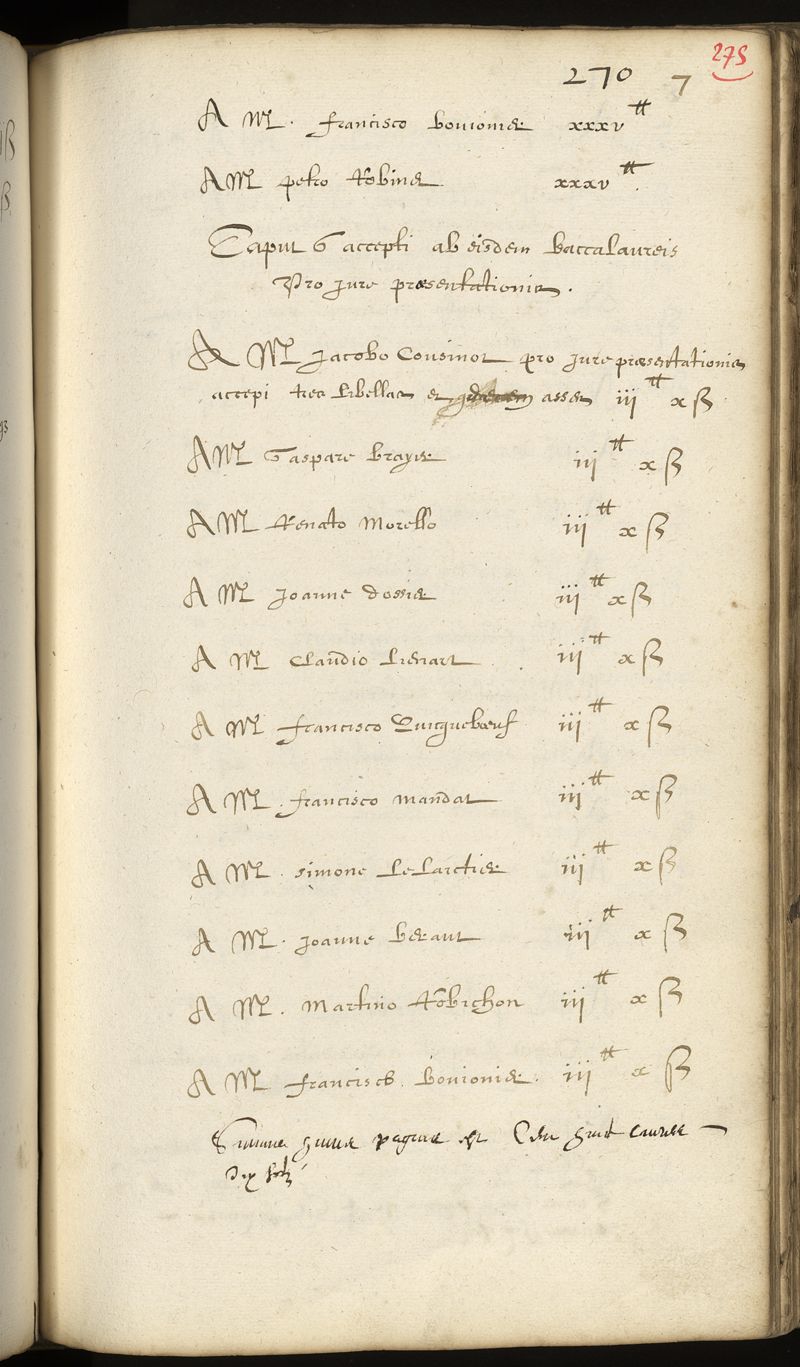 275
270 7
A M. francisco bouionier xxxv ℔
A M petro Robiner xxxv ℔
Caput 6 accepti ab eisdem baccalaureis
Pro jure præsentationis.
A M Jacobo Cousinot pro jure præsentationis
accepi tres libellas et decem asses iij ℔ x ß
A M Gaspare brayer iij ℔ x ß
A M Renato Morello iij ℔ x ß
A M Joanne dossier iij ℔ x ß
A M Claudio Lienart iij ℔ x ß
A M francisco Quicquebœuf iij ℔ x ß
A M. francisco mandat iij ℔ x ß
A M. simone Le Larctier iij ℔ x ß
A M. Joanne beraut iij ℔ x ß
A M. Martino Robichon iij ℔ x ß
A M francisco. bouionier. iij ℔ x ß
Summa huius paginæ est